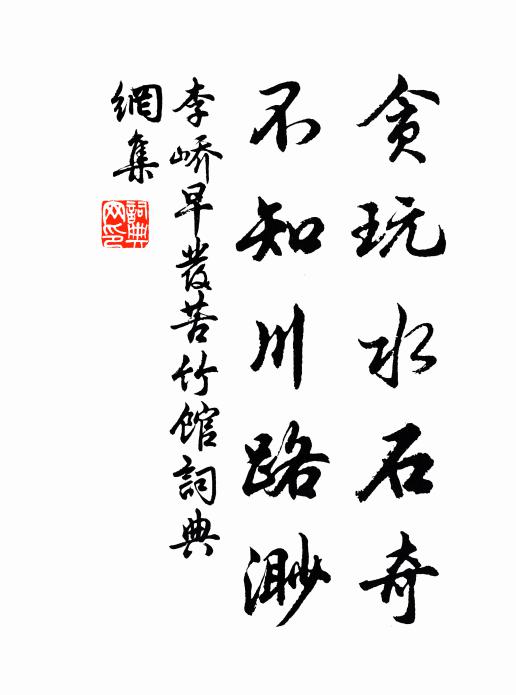 貪玩水石奇
不知川路渺
李嶠早發苦竹館詞典
網集
詞典
网印